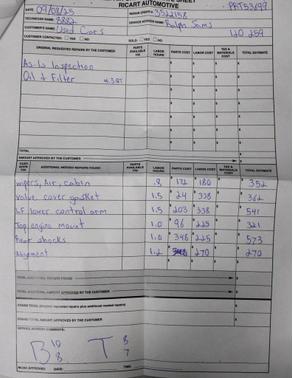 RICART AUTOMOTIVE
DATE 09/08/25 REPAIR ORDER #
TECHNICIAN NAME: SERVICE ADVISOR NAME: Ralph Sams
CUSTOMER'S NAME: Used Cars
CUSTOMER CONTACTED: YES NO SOLD: YES NO
ORIGINAL REQUESTED REPAIRS BY THE CUSTOMER PARTS AVAILABLE Y/N LABOR HOURS PARTS COST LABOR COST TAX & MATERIALS COST TOTAL ESTIMATE
As-Is Inspection
Oil & Filter
TOTAL
AMOUNT APPROVED BY THE CUSTOMER
ADDITIONAL NEEDED REPAIRS FOUND PARTS AVAILABLE Y/N LABOR HOURS PARTS COST LABOR COST TAX & MATERIALS COST TOTAL ESTIMATE
wipers, Air, cabin .8 172 180 352
Valve cover gasket 1.5 24 338 362
LF lower control arm 1.5 203 338 541
Top engine mount 1.0 96 225 321
Rear shocks 1.0 348 225 573
Alignment 1.2 270 270
TOTAL ADDITIONAL NEEDED REPAIRS FOUND
TOTAL ADDITIONAL AMOUNT APPROVED BY THE CUSTOMER
GRAND TOTAL (Original requested repairs plus additional needed repairs)
GRAND TOTAL AMOUNT APPROVED BY THE CUSTOMER
SERVICE ADVISOR COMMENTS:
B 10 8 T 8 7
DATE TIME